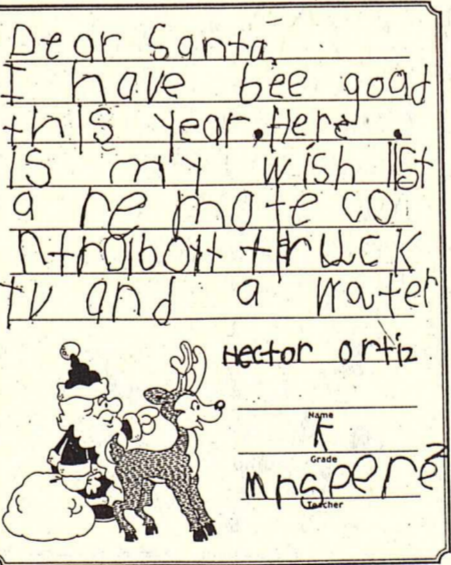 Dear Santa,
I have bee good
this year. Here .
is my wish list
a remote co
ntrolbott truck
tv and a water
Hector Ortiz
Name
K
Grade
Mrs perez
Teacher